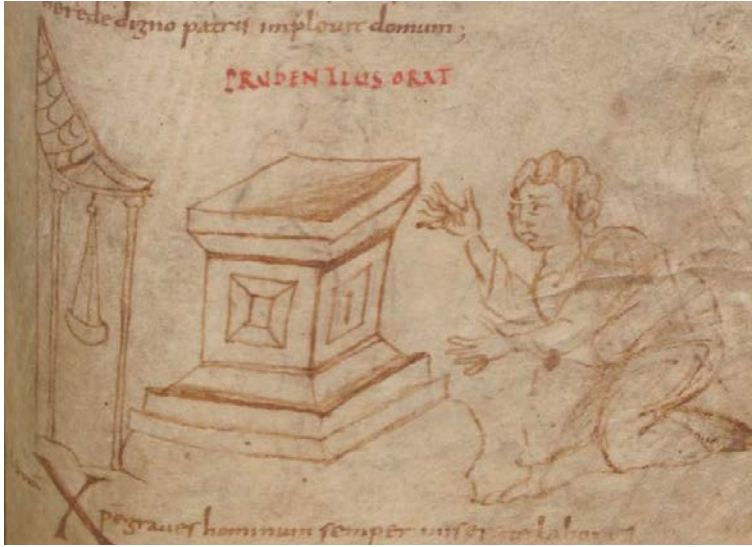 herede digno patris implouit domum;
PRUDENTIUS ORAT
Xpe graues hominum semper miserate labores